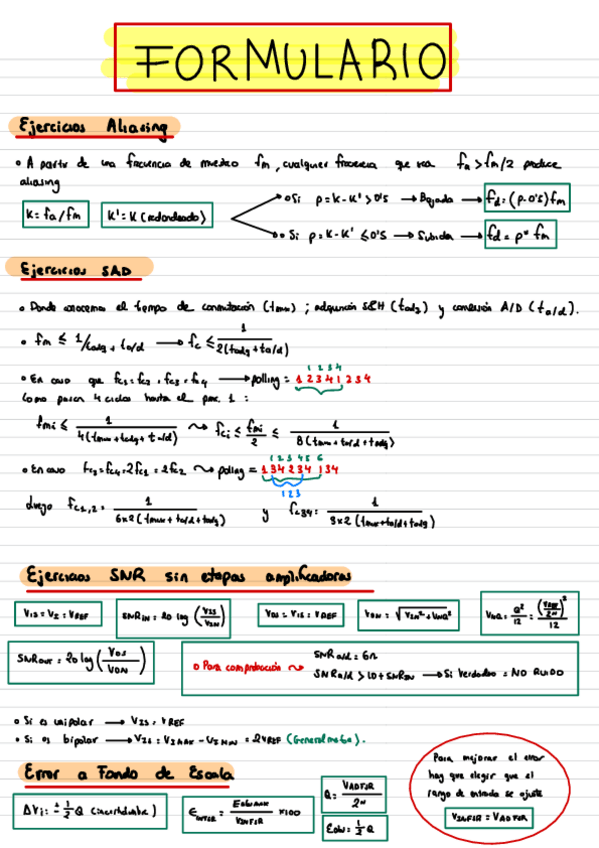 FORMULARIO
Ejercicios Aliasing
• A partir de una frecuencia de muestreo fm, cualquier frecuencia que sea fa > fm/2 produce
aliasing
K = fa/fm
K' = K (redondeado)
• Si p = K - K' > 0'5 → Bajada → fd = (p-0'5) fm
• Si p = K - K' ≤ 0'5 → Subida → fd = p * fm
Ejercicios SAD
• Donde conocemos el tiempo de conmutación (tmux); adquisición S&H (tadq) y conversión A/D (ta/d).
• fm ≤ 1/tadq + ta/d → fc ≤ 1/2(tadq + ta/d)
1 2 3 4
• En caso que fc1 = fc2 = fc3 = fc4 → polling = 1 2 3 4 1 2 3 4
Como pasan 4 ciclos hasta el 1:
fmi ≤ 1/4(tmux + tadq + ta/d) ⇝ fci ≤ fmi/2 ≤ 1/8(tmux + ta/d + tadq)
1 2 3 4 5 6
• En caso fc3 = fc4 = 2fc1 = 2fc2 ⇝ polling = 1 3 4 2 3 4 1 3 4
1 2 3
Luego fc1,2 = 1/6x2 (tmux + ta/d + tadq) y fc34 = 1/3x2 (tmux + ta/d + tadq)
Ejercicios SNR sin etapas amplificadoras
VIS = VI = VREF
SNRIN = 20 log (VIS/VIN)
VOS = VIS = VREF
VON = √VIN² + VNQ²
VNQ = Q²/12 = (VREF/2^N)²/12
SNROUT = 20 log (VOS/VON)
• Para comprobación ⇝
SNRa/d = 6n
SNRa/d > 10 + SNRIN → Si Verdadero = NO RUIDO
• Si es unipolar → VIS = VREF
• Si es bipolar → VIS = VIMAX - VIMIN = 2VREF (Generalmente).
Error a Fondo de Escala
ΔVi = ± 1/2 Q (incertidumbre)
EINTFSR = EQMAX/VINFSR x100
Q = VADFSR/2^N
EQM = 1/2 Q
Para mejorar el error
hay que elegir que el
rango de entrada se ajuste
VINFSR = VADFSR